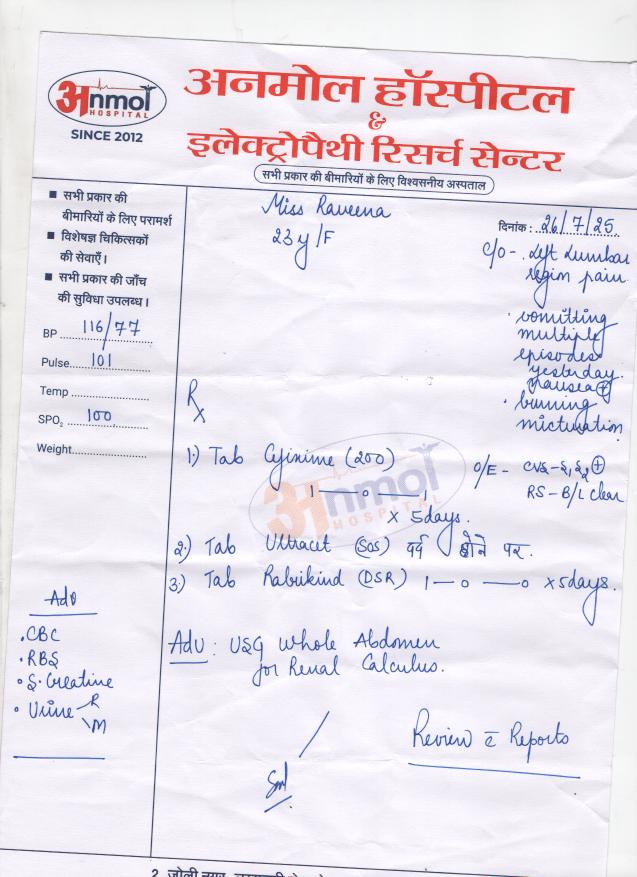 अनमोल हॉस्पीटल
&
इलेक्ट्रोपैथी रिसर्च सेन्टर
सभी प्रकार की बीमारियों के लिए विश्वसनीय अस्पताल
अnmol
HOSPITAL
SINCE 2012
■ सभी प्रकार की
बीमारियों के लिए परामर्श
■ विशेषज्ञ चिकित्सकों
की सेवाएँ।
■ सभी प्रकार की जाँच
की सुविधा उपलब्ध।
BP 116/77
Pulse 101
Temp
SPO₂ 100
Weight
Miss Raveena
23y/F
दिनांक : 26/7/25
c/o - . Left Lumbar
region pain
. vomitting
multiple
episodes
yesterday.
nausea ⊕
. burning
micturation
O/E - CVS - S₁ S₂ ⊕
RS - B/L clear
Rx
1.) Tab (200)
1 — 0 — 1
x 5days.
2.) Tab Ultracet (SOS) दर्द होने पर.
3.) Tab Rabikind (DSR) 1 — 0 — 0 x 5days.
Adv : USG Whole Abdomen
for Renal Calculus.
Review c̄ Reports
Adv
. CBC
. RBS
. S. Creatine
. Urine R
M
अnmol
HOSPITAL